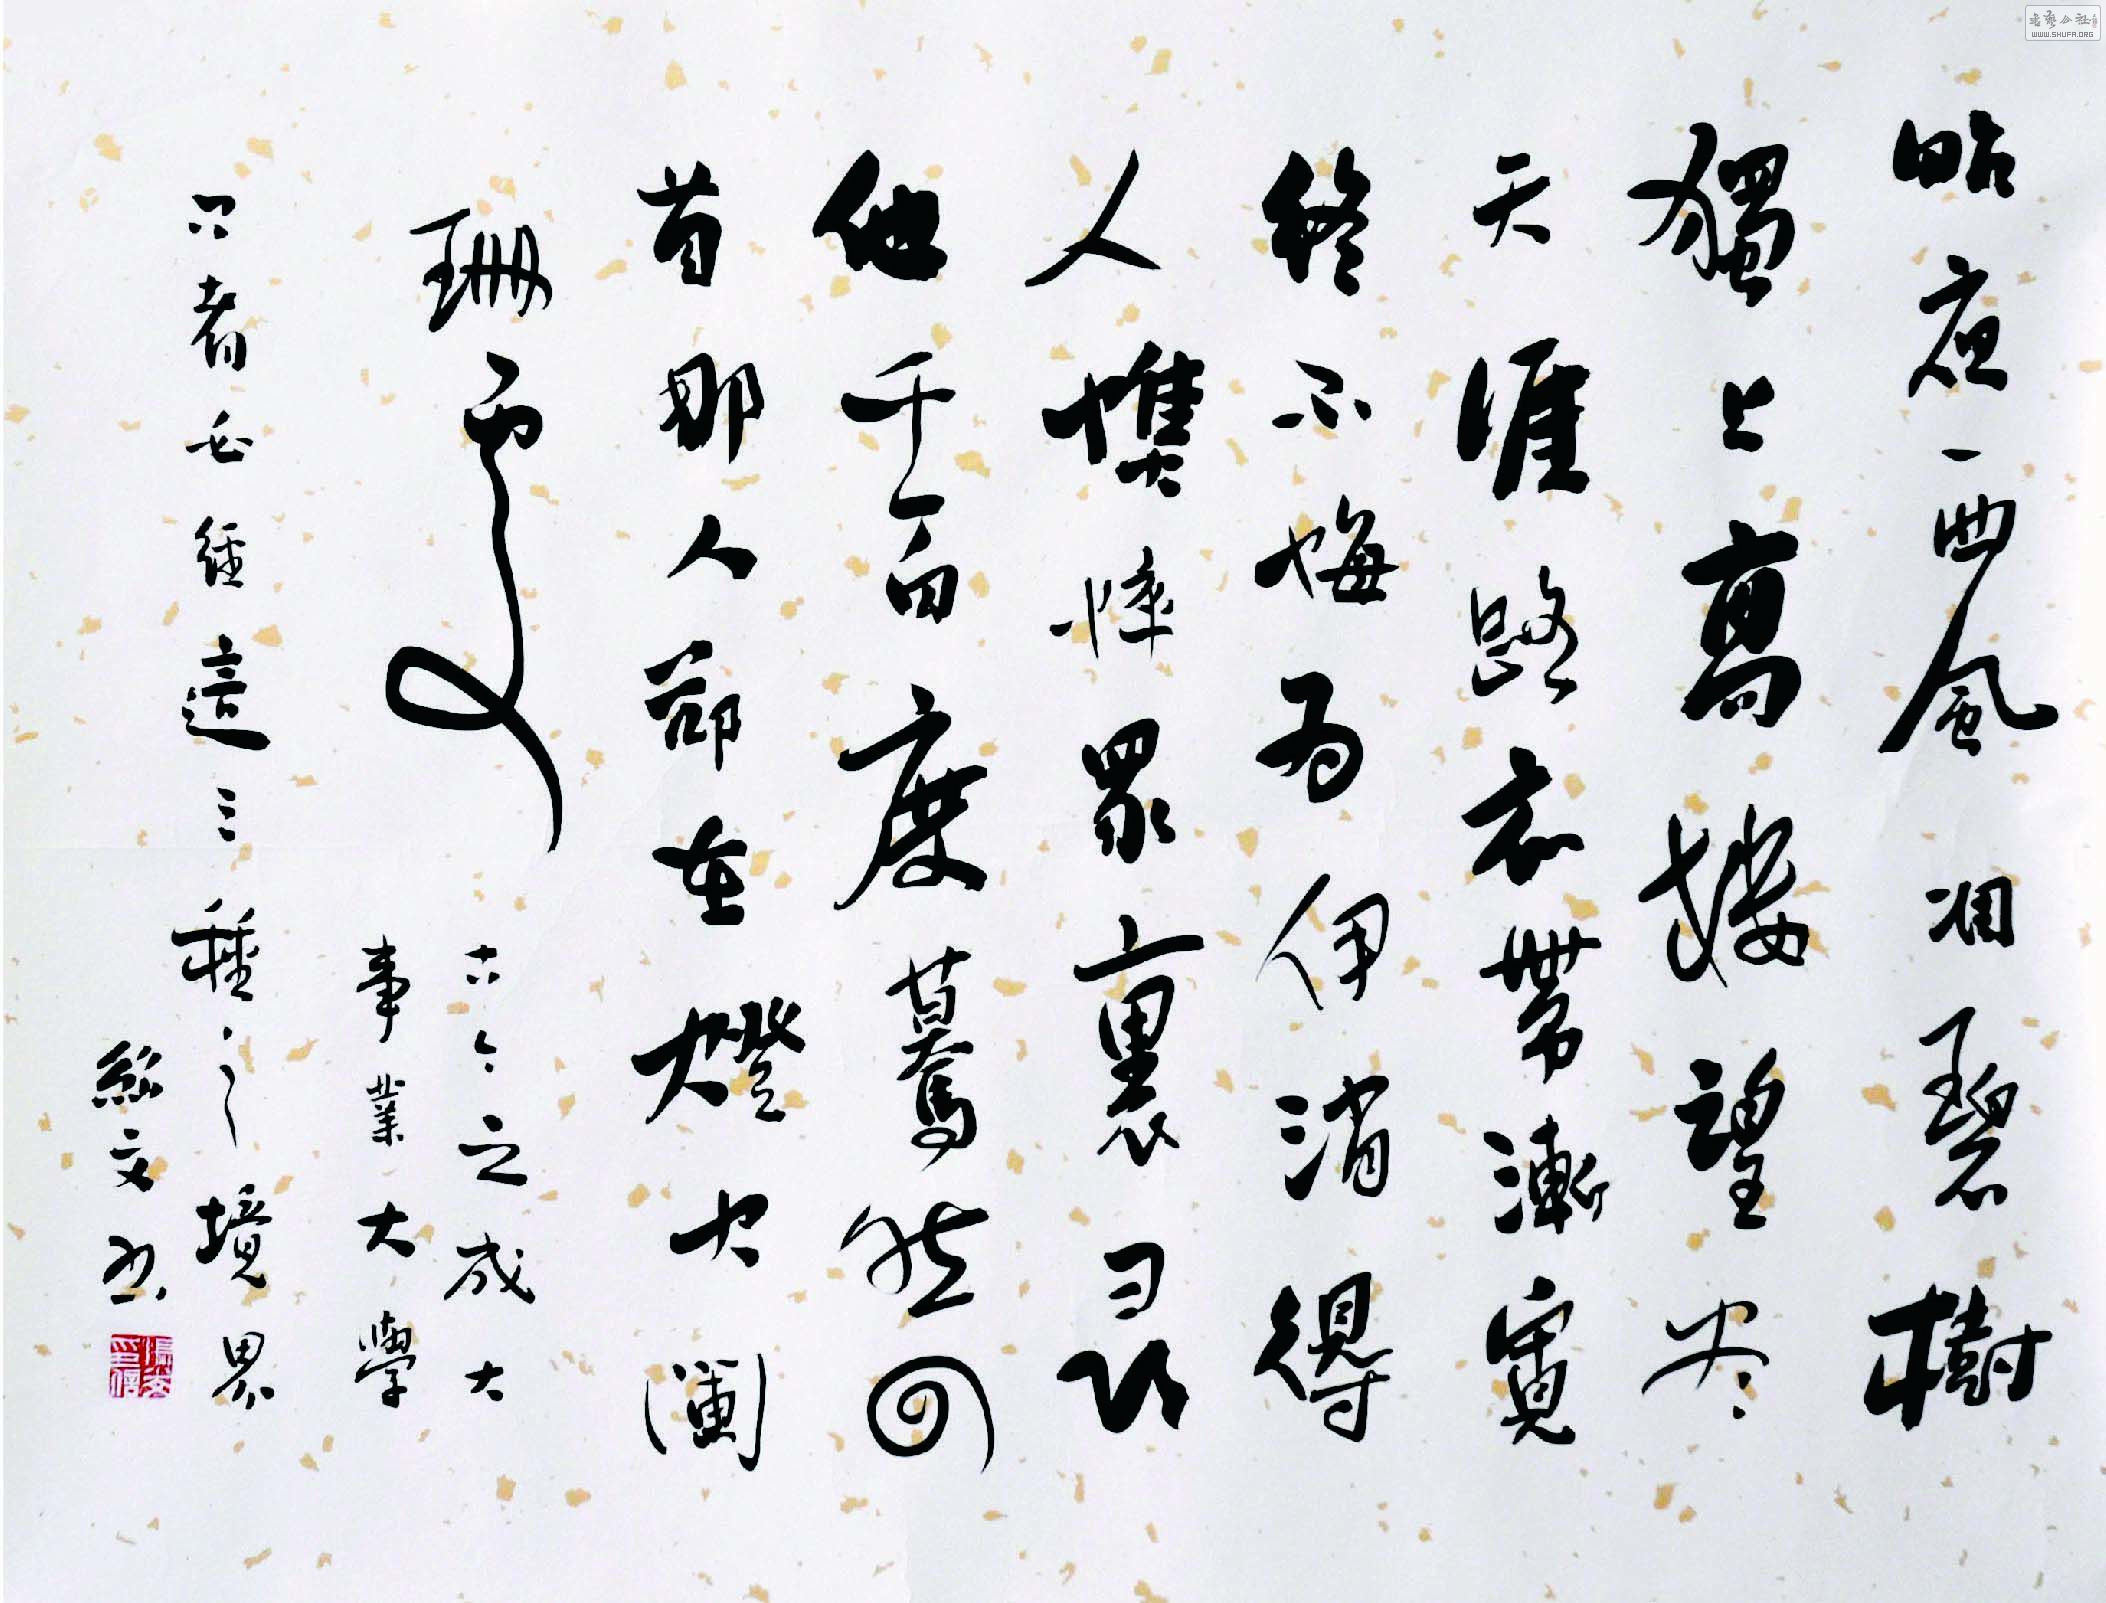 昨夜一西風凋碧樹
獨上高楼望尽
天涯路衣帶漸寬
終不悔為伊消得
人憔悴眾裏尋
他千百度驀然回
首那人卻在燈火闌
珊處
古今之成大
事業大學
問者必經這三種之境界
文书
WWW.SHUFA.ORG